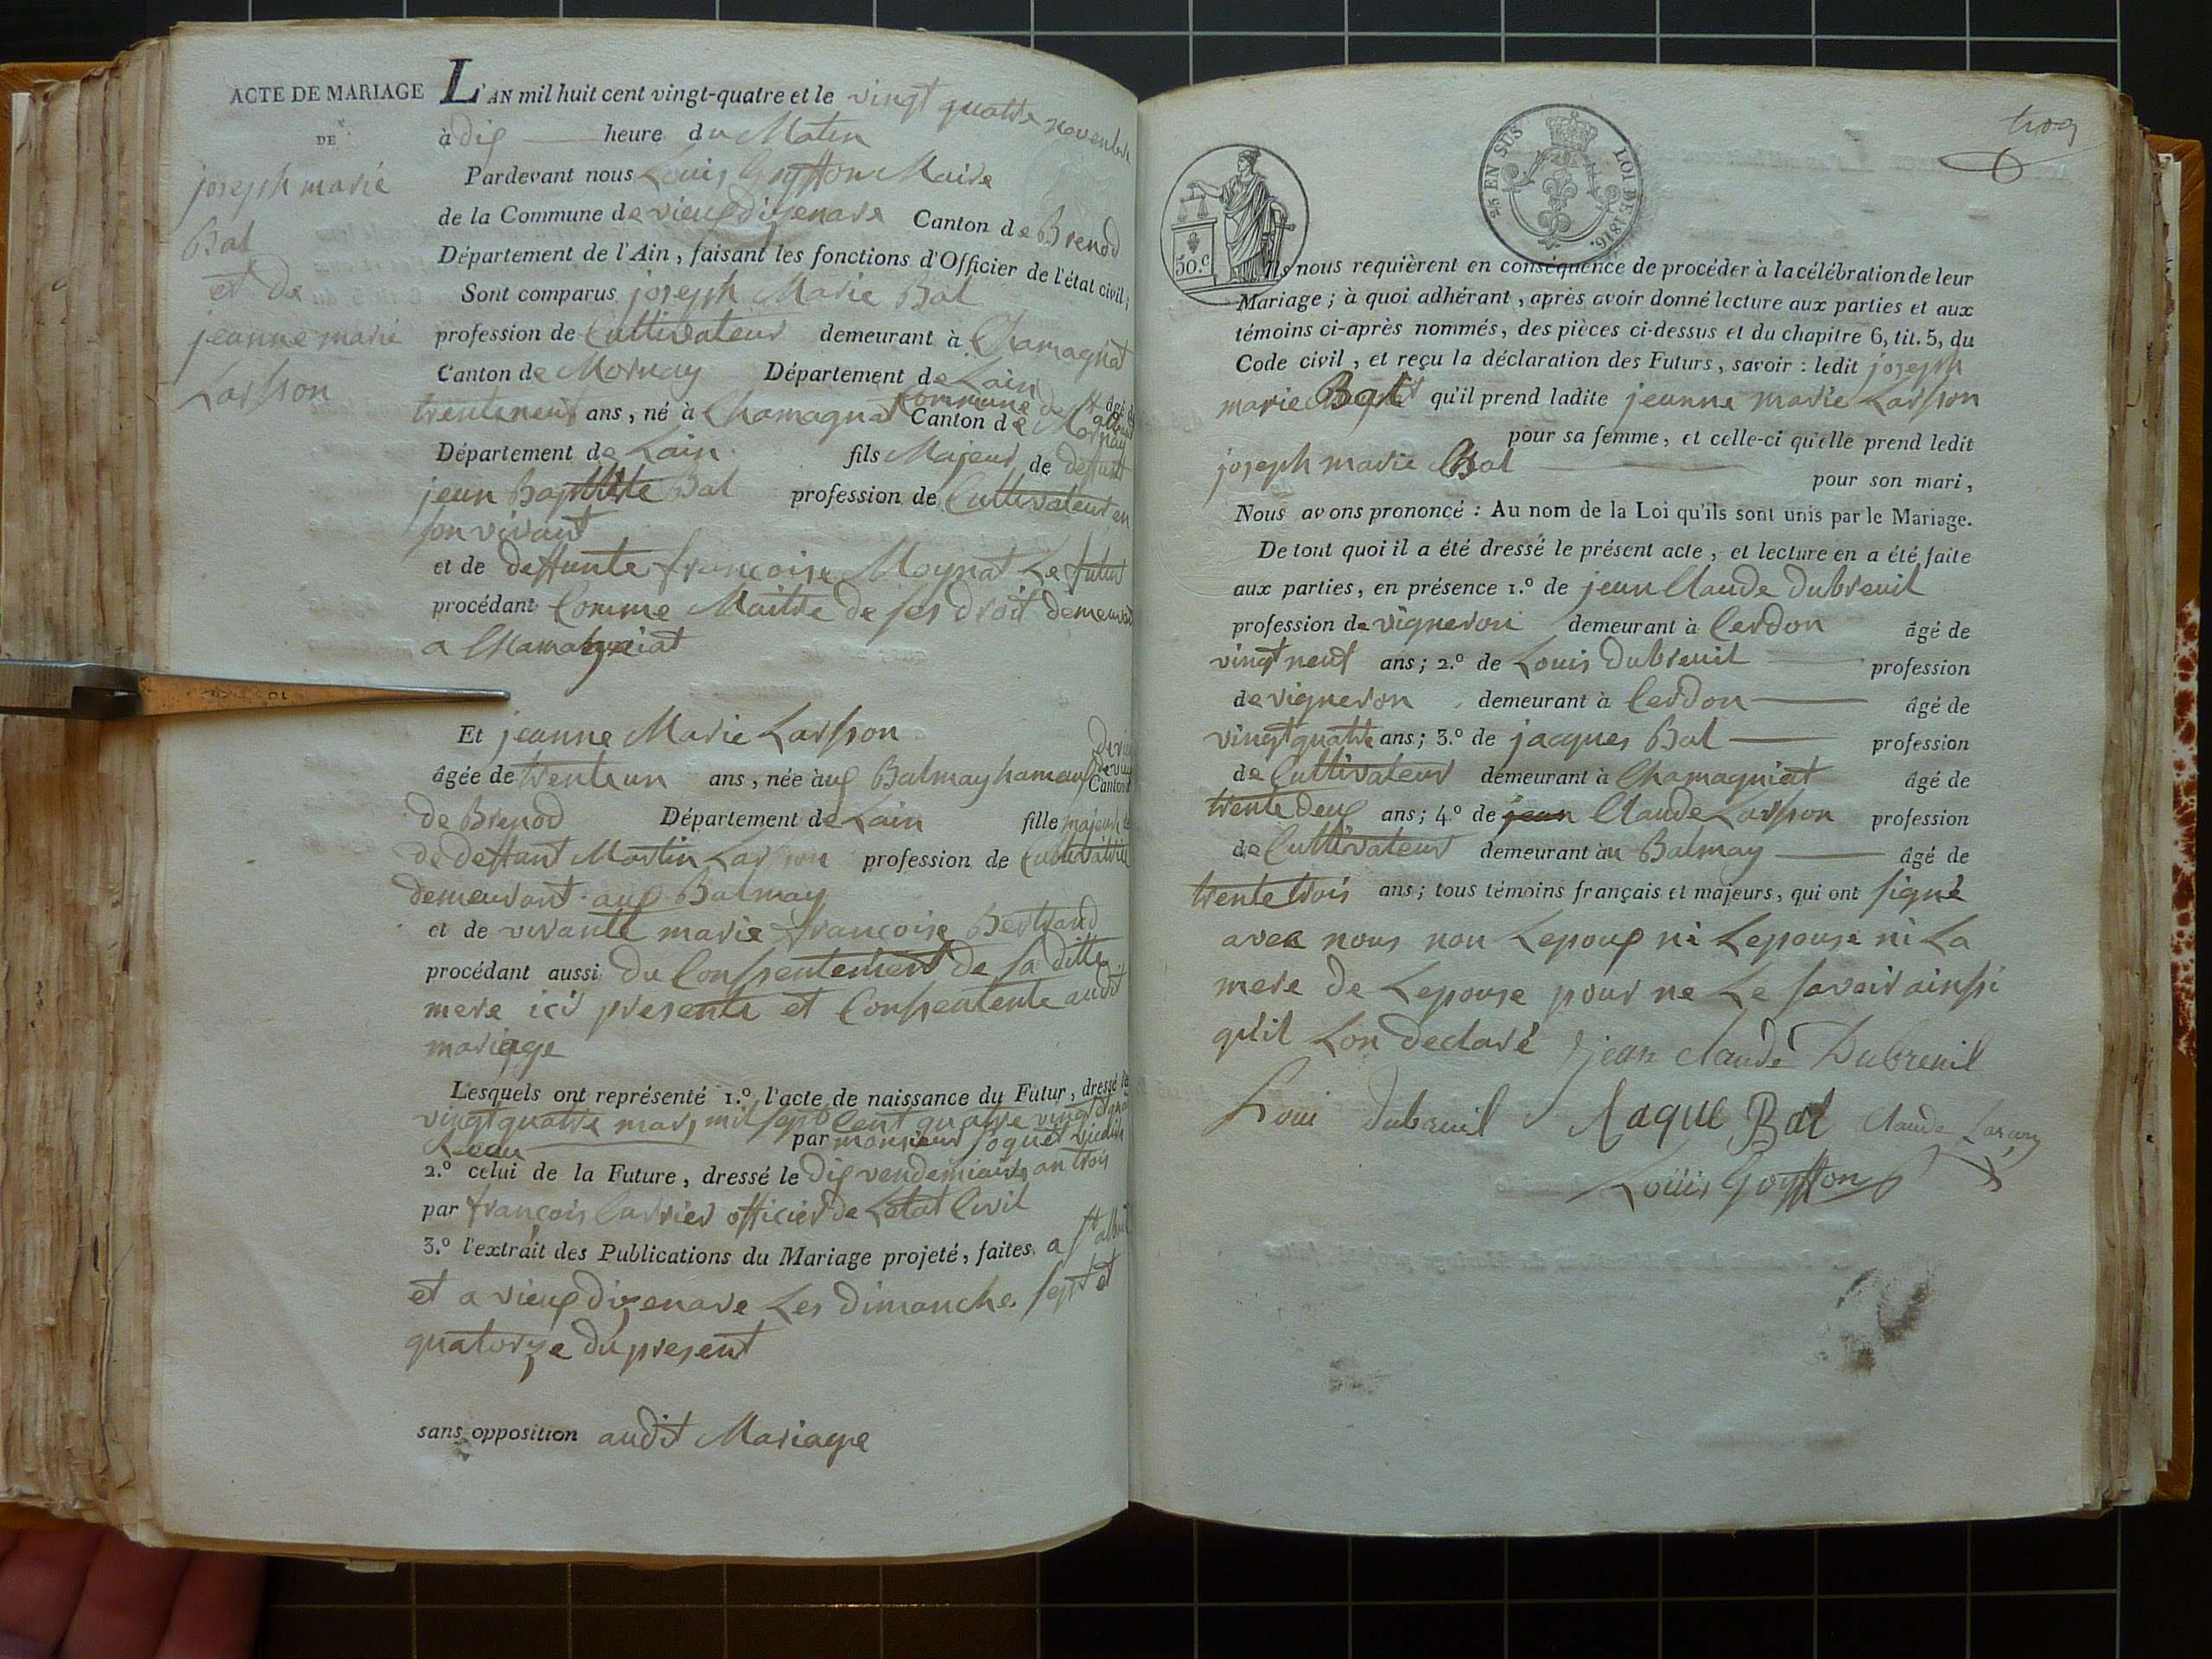 ACTE DE MARIAGE
DE
joseph marie
Bal
et de
jeanne marie
Larsson
L'AN mil huit cent vingt-quatre et le vingt quattre novembre
à dix heure du Matin
Pardevant nous Louis Goyffon Maire
de la Commune de vieuxdizenave Canton de Brenod
Département de l'Ain, faisant les fonctions d'Officier de l'état civil;
Sont comparus joseph Marie Bal
profession de Cultivateur demeurant à Chamagnat
Canton de Mornay Département de Lain
Commune de St alban âgé de
trente neuf ans, né à Chamagnat Canton de Mornay
Département de Lain fils Majeur de deffunt
jean Baptiste Bal profession de Cultivateur en
son vivant
et de deffunte francoise Moynat Le futur
procédant Comme Maitre de ses droit demeurant
a Chamagniat
Et jeanne Marie Larsson
âgée de trente un ans, née aux Balmay hameau Canton
de Brenod Département de Lain fille majeure
de deffunt Martin Larsson profession de Cultivatrice
demeurant aux Balmay
et de vivante marie francoise Bertrand
procédant aussi du Consentement de sa ditte
mere ici presente et Consentente audit
mariage
Lesquels ont représenté 1.º l'acte de naissance du Futur, dressé le
vingt quattre mars mil sept Cent quatre vingt
par monsieur
2.º celui de la Future, dressé le dix vendemiaire an trois
par francois Carrier officier de Letat Civil
3.º l'extrait des Publications du Mariage projeté, faites a St alban
et a vieuxdizenave Les dimanche sept et
quatorze du present
sans opposition audit Mariage
25 EN SUS
LOI DE 1816.
50.c
Ils nous requièrent en conséquence de procéder à la célébration de leur
Mariage; à quoi adhérant, après avoir donné lecture aux parties et aux
témoins ci-après nommés, des pièces ci-dessus et du chapitre 6, tit. 5, du
Code civil, et reçu la déclaration des Futurs, savoir: ledit joseph
marie Bal qu'il prend ladite jeanne marie Larsson
pour sa femme, et celle-ci qu'elle prend ledit
joseph marie Bal
pour son mari,
Nous avons prononcé: Au nom de la Loi qu'ils sont unis par le Mariage.
De tout quoi il a été dressé le présent acte, et lecture en a été faite
aux parties, en présence 1.º de jean Claude Dubreuil
profession de vigneron demeurant à Cerdon âgé de
vingt neuf ans; 2.º de Louis Dubreuil profession
de vigneron demeurant à Cerdon âgé de
vingt quattre ans; 3.º de jacques Bal profession
de Cultivateur demeurant à Chamagniat âgé de
trente deux ans; 4.º de jean Claude Larsson profession
de Cultivateur demeurant au Balmay âgé de
trente trois ans; tous témoins français et majeurs, qui ont signé
avec nous non Lepoux ni Lepouse ni La
mere de Lepouse pour ne Le savoir ainssi
qu'il Lon declaré jean claude Dubreuil
Loui dubreuil Jaque Bal Claude
Loüis Goyffon